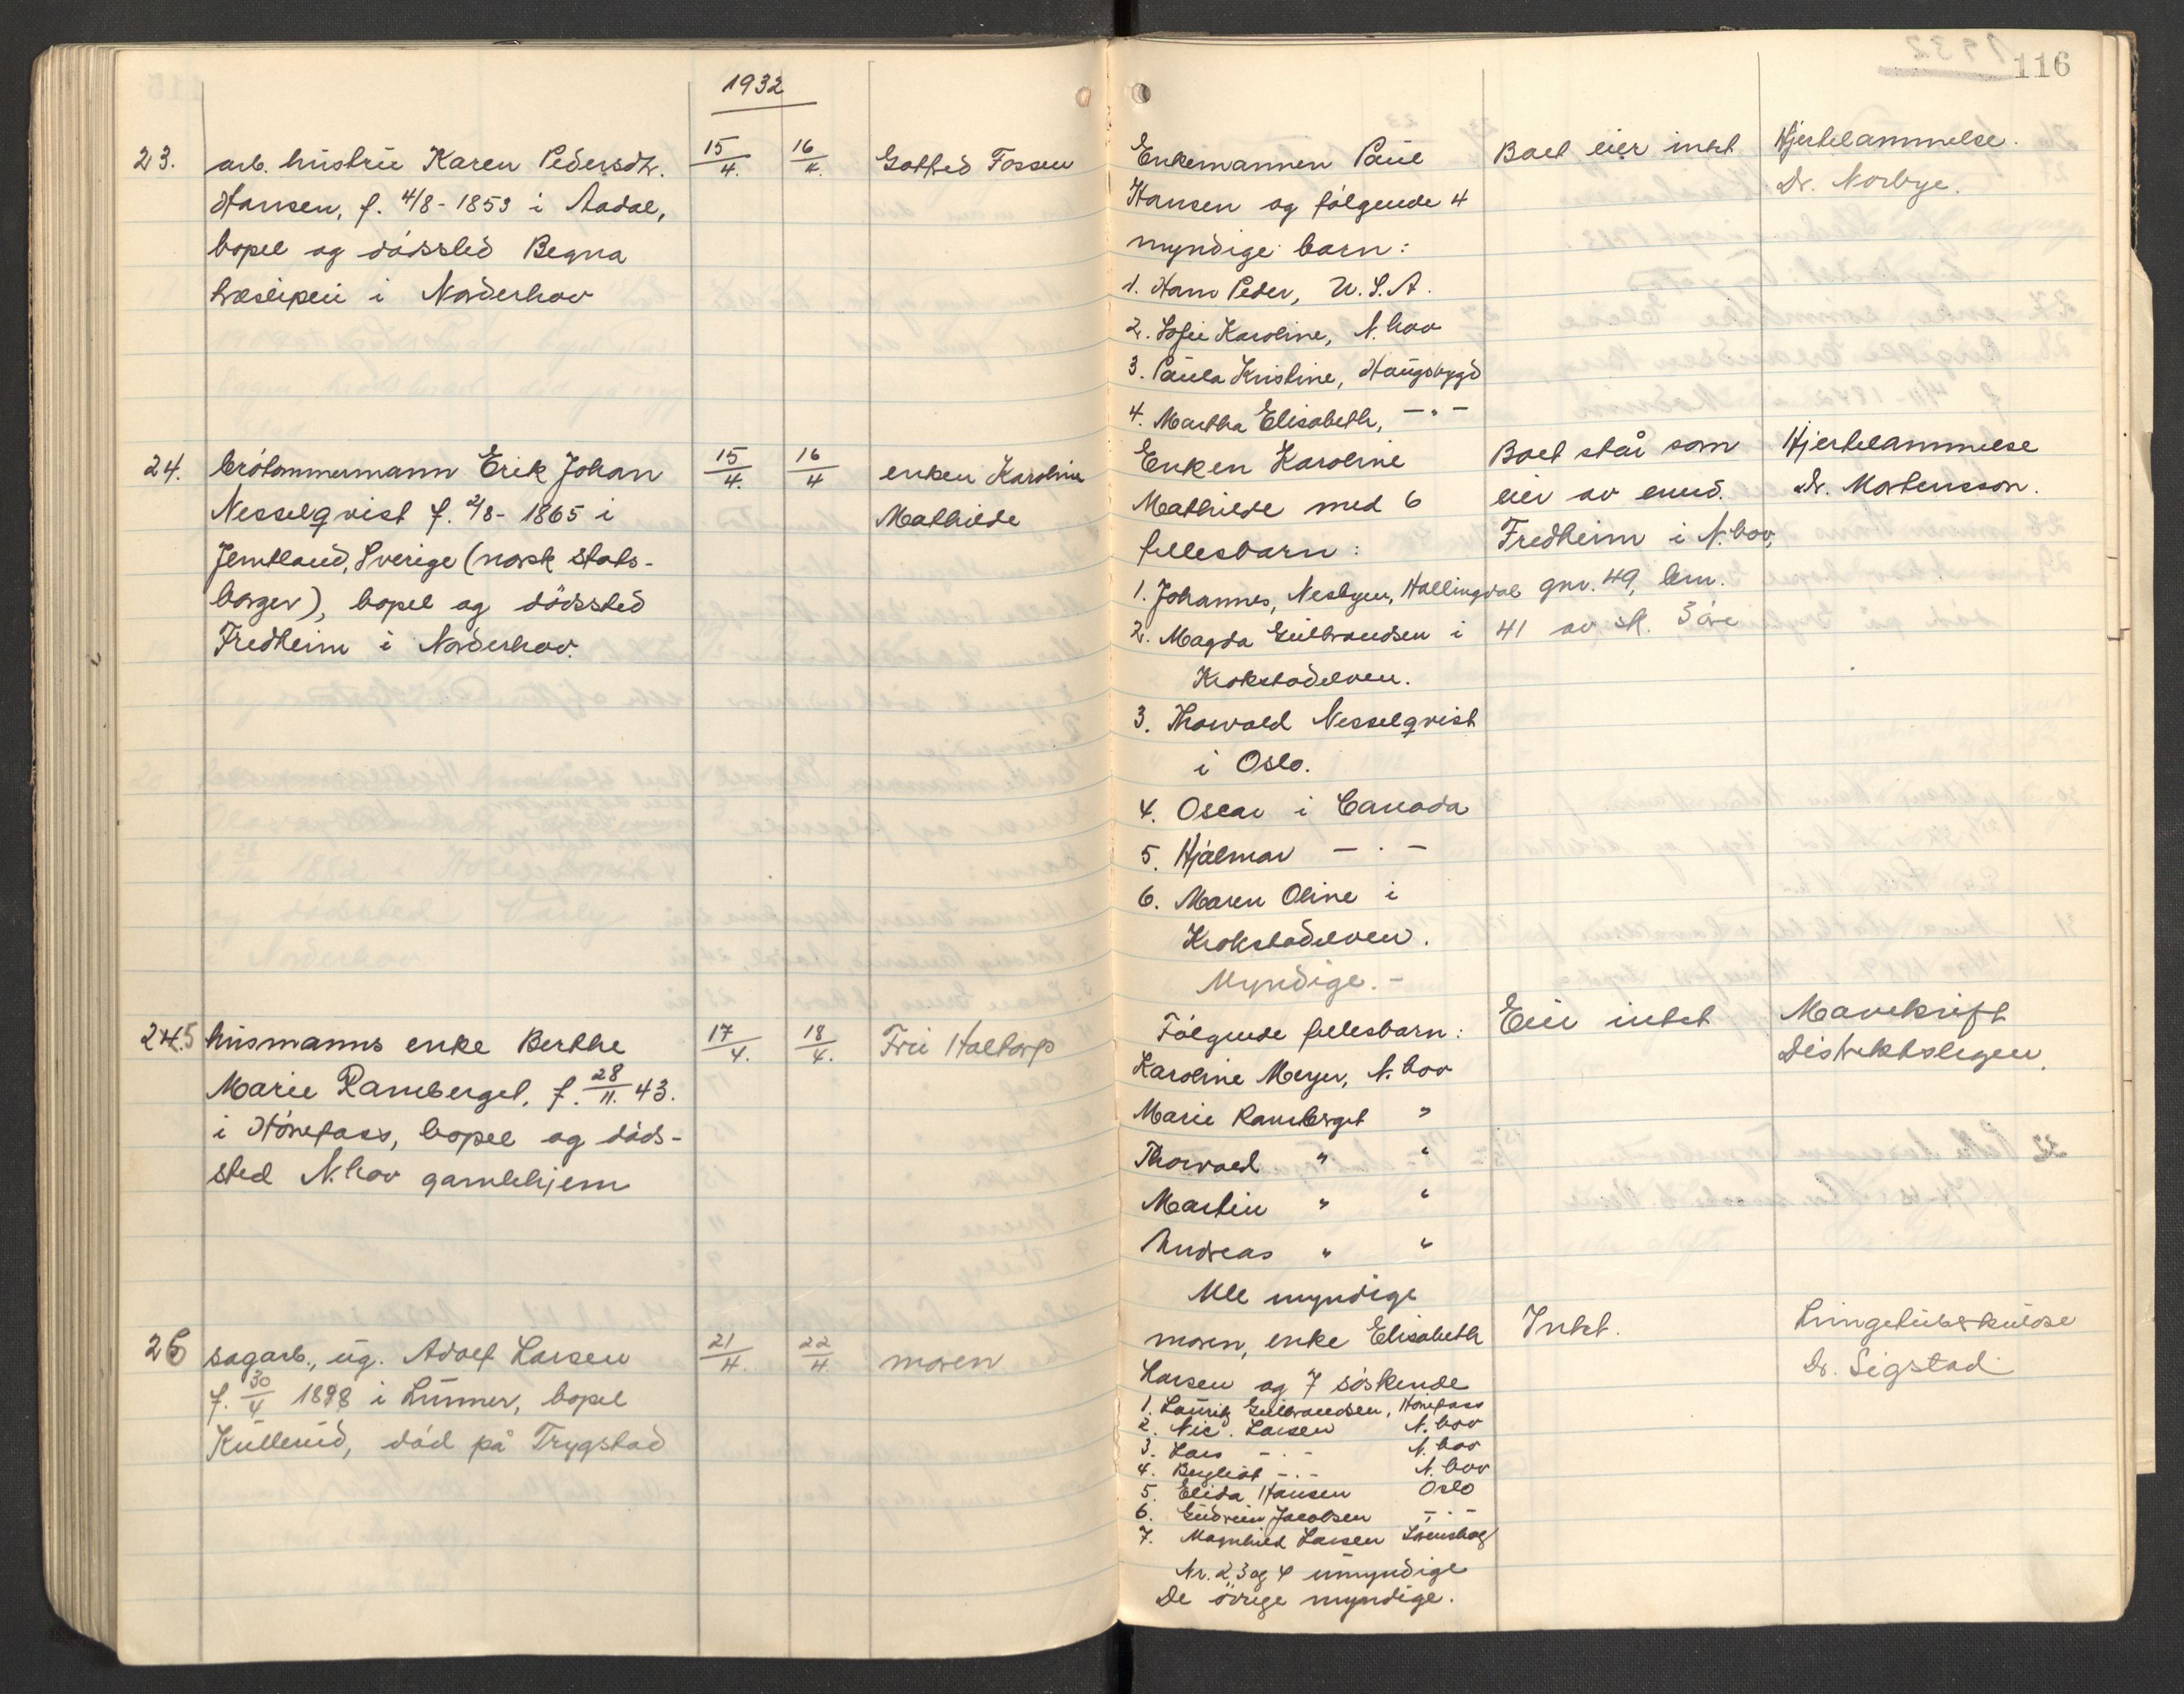 1932
116
23. arb. hustru Karen Pedersdtr.
Hansen, f. 4/8- 1853 i Aadal,
bopel og dødssted Begna
træsliperi i Norderhov
15/4. 16/4.
Gottfred Fossen
Enkemannen Paul
Hansen og følgende 4
myndige barn:
1. Hans Peder, U.S.A.
2. Sofie Karoline, N.hov
3. Paula Kristine, Haugsbygd
4. Martha Elisabeth, -"-
Boet eier intet
Hjertelammelse.
Dr. Norbye.
24. brótømmermann Erik Johan
Nesselqvist f. 2/8- 1865 i
Jemtland, Sverige (norsk stats-
borger), bopel og dödssted
Fredheim i Norderhov.
15/4. 16/4
enken Karoline
Mathilde
Enken Karoline
Mathilde med 6
fellesbarn:
1. Johannes, Nesbyen, Hallingdal
2. Magda Gulbrandsen i
Krokstadelven.
3. Thorvald Nesselqvist
i Oslo.
4. Oscar i Canada
5. Hjalmar - " -
6. Maren Oline i
Krokstadelven.
Myndige. -
Boet står som
eier av eiend.
Fredheim i N.hov,
gnr. 49, brn.
41 av sk. 3 øre
Hjertelammelse
Dr. Mortensson.
245 husmanns enke Berthe
Marie Ramberget, f. 28/11. 43.
i Hönefoss, bopel og døds-
sted N.hov gamlehjem
17/4. 18/4.
Fru Haltorp
Følgende fellesbarn:
Karoline Meyer, N.hov
Marie Ramberget "
Thorvald " "
Martin " "
Andreas " "
Alle myndige
Eier intet
Mavekreft
Distriktslegen.
26 sagarb., ug. Adolf Larsen
f. 30/4 1898 i Lunner, bopel
Kullerud, død på Trygstad
21/4. 22/4.
moren
moren, enke Elisabeth
Larsen og 7 søskende
1. Lauritz Gulbrandsen, Hönefoss
2. Nic. Larsen N.hov
3. Lars - " - N.hov
4. Bergliot - " - N.hov
5. Elida Hansen Oslo
6. Gudrun Jacobsen - " -
7. Magnhild Larsen Lørenskog
Nr. 2, 3 og 4 umyndige
De övrige myndige.
Intet.
Lungetuberkulose
Dr. Sigstad